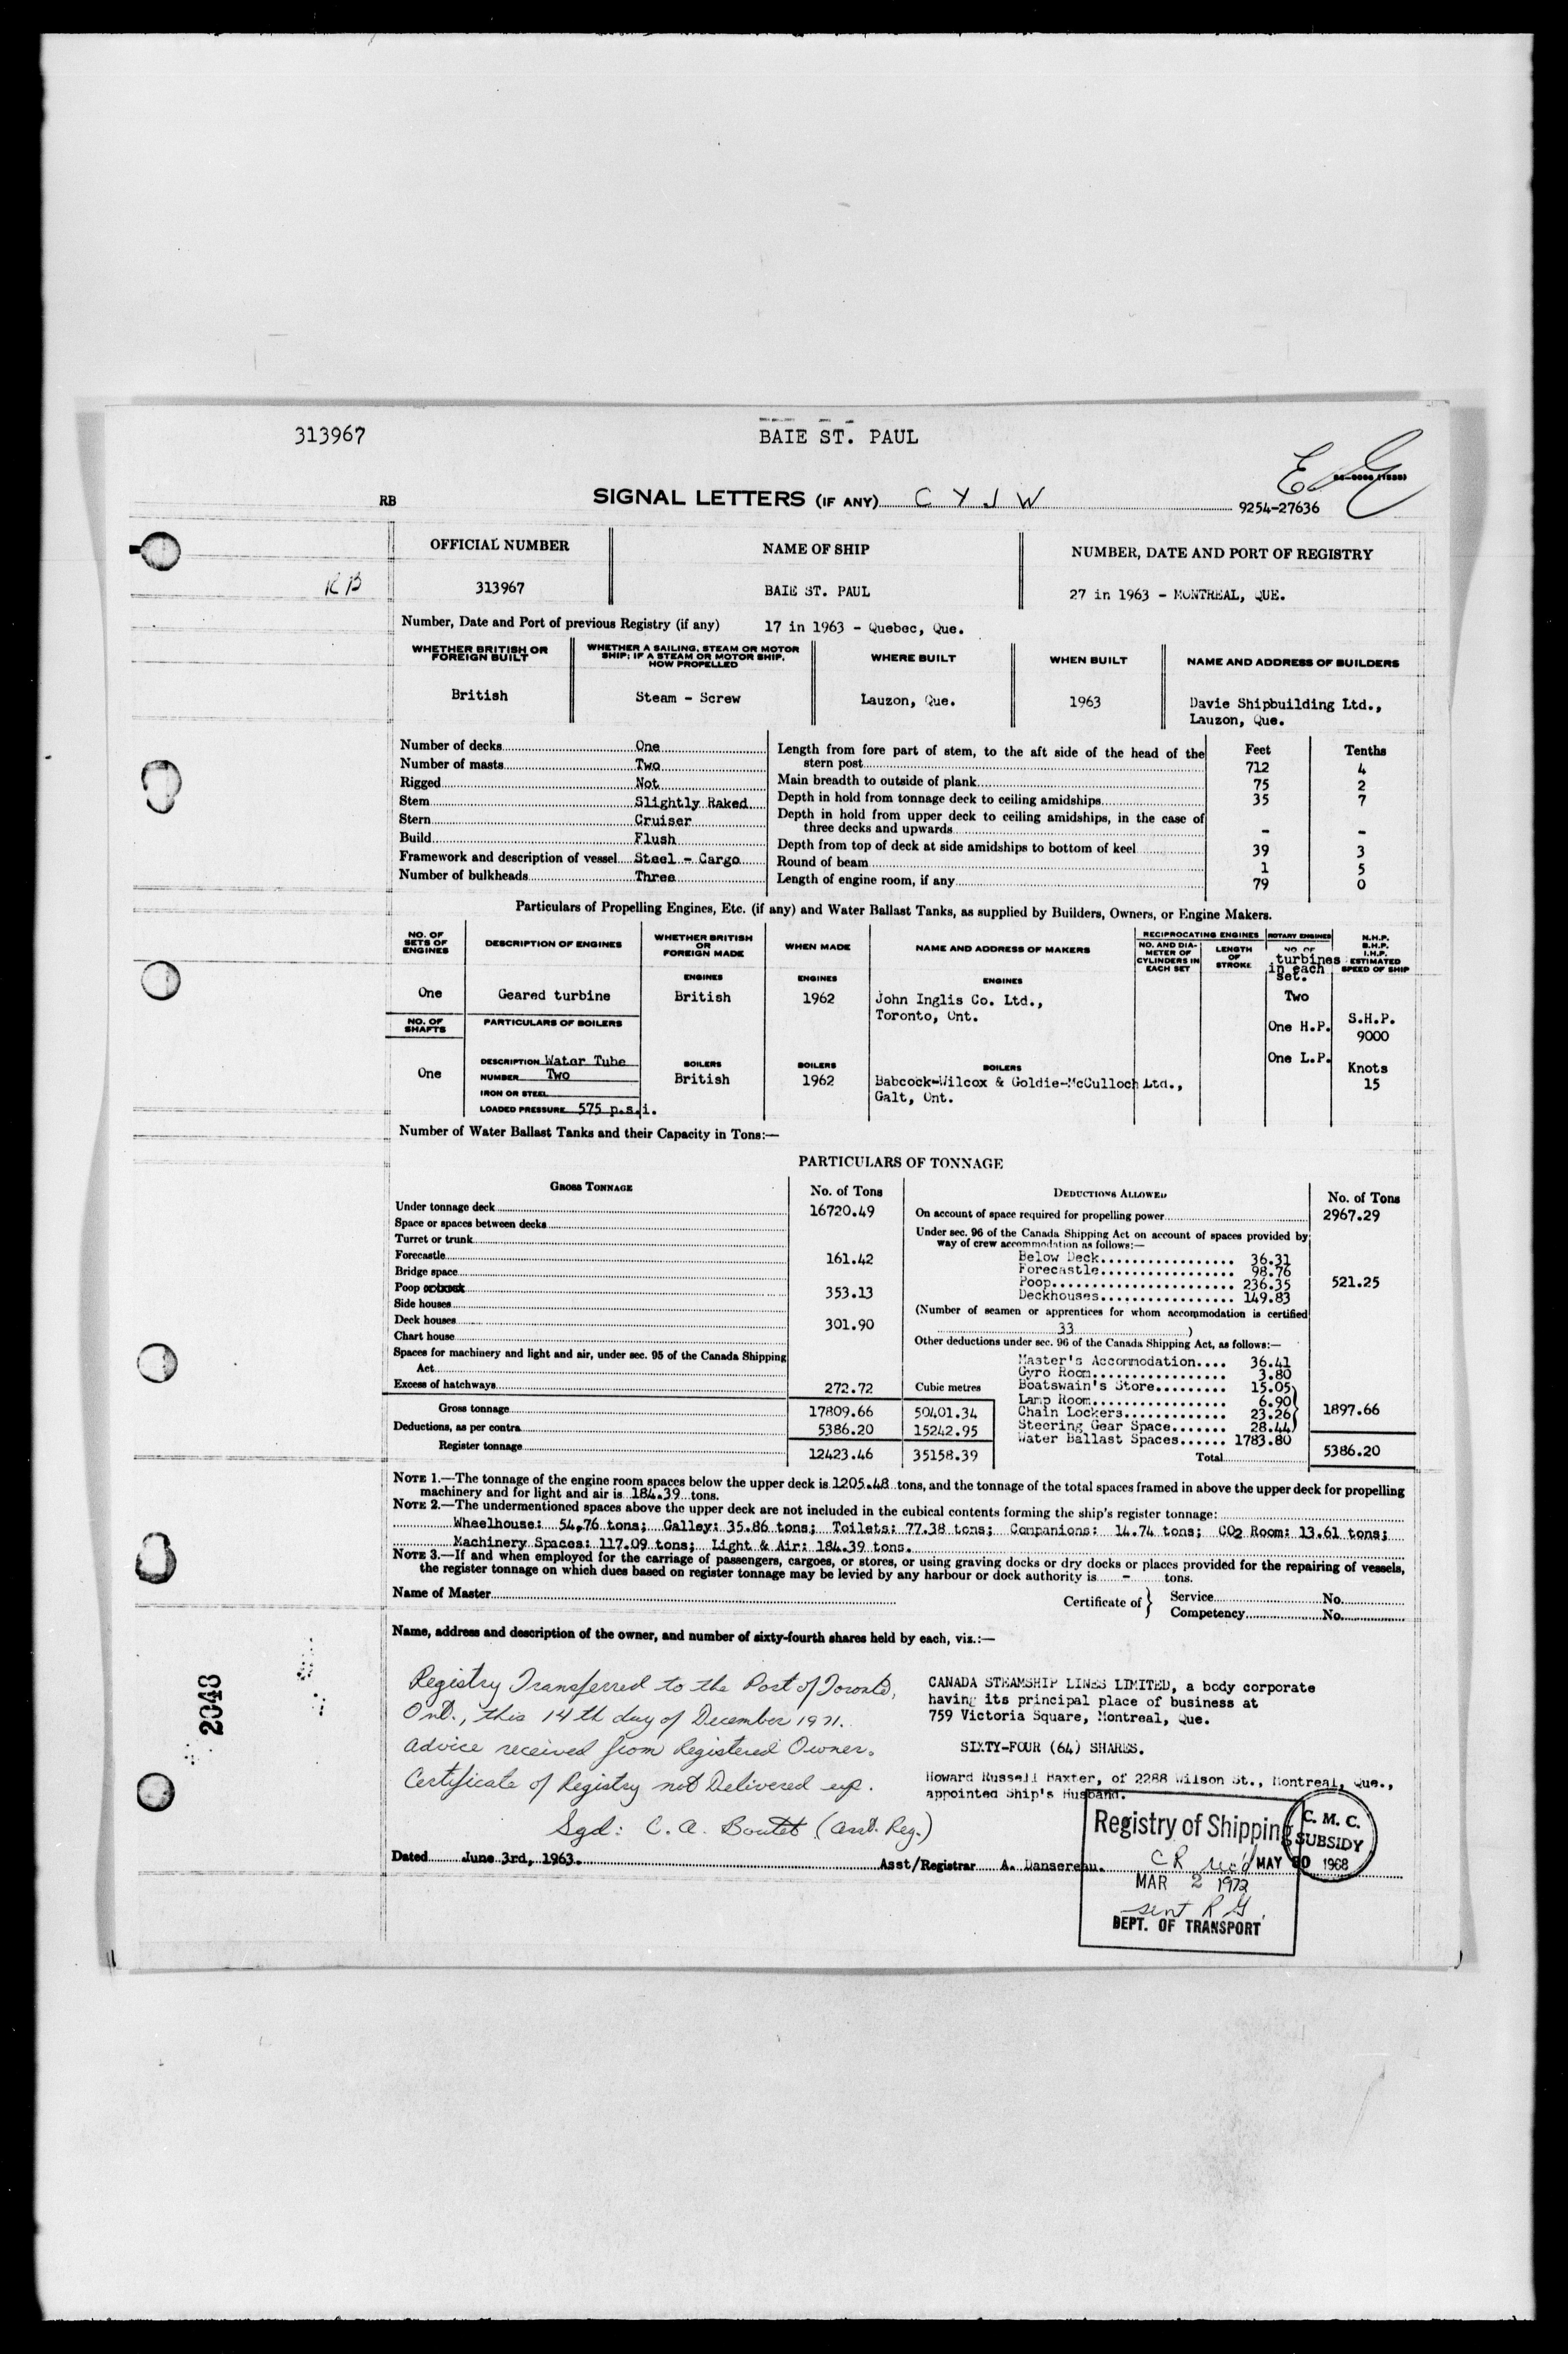 313967
BAIE ST. PAUL
RB
SIGNAL LETTERS (IF ANY) C Y J W
9254-27636
OFFICIAL NUMBER
NAME OF SHIP
NUMBER, DATE AND PORT OF REGISTRY
RB
313967
BAIE ST. PAUL
27 in 1963 - MONTREAL, QUE.
Number, Date and Port of previous Registry (if any) 17 in 1963 - Quebec, Que.
WHETHER BRITISH OR FOREIGN BUILT
WHETHER A SAILING, STEAM OR MOTOR SHIP; IF A STEAM OR MOTOR SHIP, HOW PROPELLED
WHERE BUILT
WHEN BUILT
NAME AND ADDRESS OF BUILDERS
British
Steam - Screw
Lauzon, Que.
1963
Davie Shipbuilding Ltd.,
Lauzon, Que.
Number of decks One
Number of masts Two
Rigged Not
Stem Slightly Raked
Stern Cruiser
Build Flush
Framework and description of vessel Steel - Cargo
Number of bulkheads Three
Feet Tenths
Length from fore part of stem, to the aft side of the head of the
stern post 712 4
Main breadth to outside of plank 75 2
Depth in hold from tonnage deck to ceiling amidships 35 7
Depth in hold from upper deck to ceiling amidships, in the case of
three decks and upwards - -
Depth from top of deck at side amidships to bottom of keel 39 3
Round of beam 1 5
Length of engine room, if any 79 0
Particulars of Propelling Engines, Etc. (if any) and Water Ballast Tanks, as supplied by Builders, Owners, or Engine Makers.
NO. OF SETS OF ENGINES
DESCRIPTION OF ENGINES
WHETHER BRITISH OR FOREIGN MADE
WHEN MADE
NAME AND ADDRESS OF MAKERS
RECIPROCATING ENGINES
NO. AND DIAMETER OF CYLINDERS IN EACH SET
LENGTH OF STROKE
ROTARY ENGINES
NO. OF
turbines
in each
set.
N.H.P.
B.H.P.
I.H.P.
ESTIMATED
SPEED OF SHIP
ENGINES
ENGINES
ENGINES
One
Geared turbine
British
1962
John Inglis Co. Ltd.,
Toronto, Ont.
Two
One H.P.
One L.P.
S.H.P.
9000
Knots
15
NO. OF SHAFTS
PARTICULARS OF BOILERS
One
DESCRIPTION Water Tube
NUMBER Two
IRON OR STEEL
LOADED PRESSURE 575 p.s.i.
BOILERS
British
BOILERS
1962
BOILERS
Babcock-Wilcox & Goldie-McCulloch Ltd.,
Galt, Ont.
Number of Water Ballast Tanks and their Capacity in Tons:—
PARTICULARS OF TONNAGE
GROSS TONNAGE
No. of Tons
Under tonnage deck 16720.49
Space or spaces between decks
Turret or trunk
Forecastle 161.42
Bridge space
Poop 353.13
Side houses
Deck houses 301.90
Chart house
Spaces for machinery and light and air, under sec. 95 of the Canada Shipping
Act
Excess of hatchways 272.72 Cubic metres
Gross tonnage 17809.66 50401.34
Deductions, as per contra 5386.20 15242.95
Register tonnage 12423.46 35158.39
DEDUCTIONS ALLOWED
No. of Tons
On account of space required for propelling power 2967.29
Under sec. 96 of the Canada Shipping Act on account of spaces provided by
way of crew accommodation as follows:—
Below Deck 36.31
Forecastle 98.76
Poop 236.35 521.25
Deckhouses 149.83
(Number of seamen or apprentices for whom accommodation is certified
33 )
Other deductions under sec. 96 of the Canada Shipping Act, as follows:—
Master's Accommodation 36.41
Gyro Room 3.80
Boatswain's Store 15.05
Lamp Room 6.90
Chain Lockers 23.26 1897.66
Steering Gear Space 28.44
Water Ballast Spaces 1783.80
Total 5386.20
NOTE 1.—The tonnage of the engine room spaces below the upper deck is 1205.48 tons, and the tonnage of the total spaces framed in above the upper deck for propelling
machinery and for light and air is 184.39 tons.
NOTE 2.—The undermentioned spaces above the upper deck are not included in the cubical contents forming the ship's register tonnage:
Wheelhouse: 54.76 tons; Galley: 35.86 tons; Toilets: 77.38 tons; Companions: 14.74 tons; CO2 Room: 13.61 tons;
Machinery Spaces: 117.09 tons; Light & Air: 184.39 tons.
NOTE 3.—If and when employed for the carriage of passengers, cargoes, or stores, or using graving docks or dry docks or places provided for the repairing of vessels,
the register tonnage on which dues based on register tonnage may be levied by any harbour or dock authority is - tons.
Name of Master
Certificate of } Service No.
Competency No.
Name, address and description of the owner, and number of sixty-fourth shares held by each, viz.:—
Registry Transferred to the Port of Toronto,
Ont., this 14th day of December 1971.
Advice received from Registered Owner.
Certificate of Registry not Delivered up.
Sgd: C. A. Boutet (Asst. Reg.)
CANADA STEAMSHIP LINES LIMITED, a body corporate
having its principal place of business at
759 Victoria Square, Montreal, Que.
SIXTY-FOUR (64) SHARES.
Howard Russell Baxter, of 2288 Wilson St., Montreal, Que.,
appointed Ship's Husband.
2048
Dated June 3rd, 1963.
Asst/Registrar A. Dansereau.
Registry of Shipping
CR rec'd
MAR 2 1972
sent R G.
DEPT. OF TRANSPORT
C. M. C.
SUBSIDY
MAY 30 1968